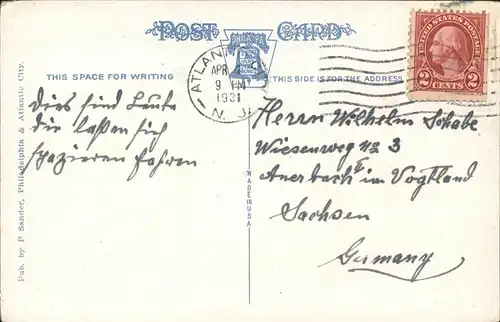 POST CARD
THIS SPACE FOR WRITING
THIS SIDE IS FOR THE ADDRESS
ATLAN
APR
9 PM
1931
N. J.
UNITED STATES POSTAGE
2 CENTS 2
Dies sind Leute
die laßen sich
spazieren fahren
Herrn Wilhelm Schabe
Wiesenweg No 3
Auerbach i. im Vogtland
Sachsen
Germany
MADE IN U.S.A.
Pub. by P Sander, Philadelphia & Atlantic City.